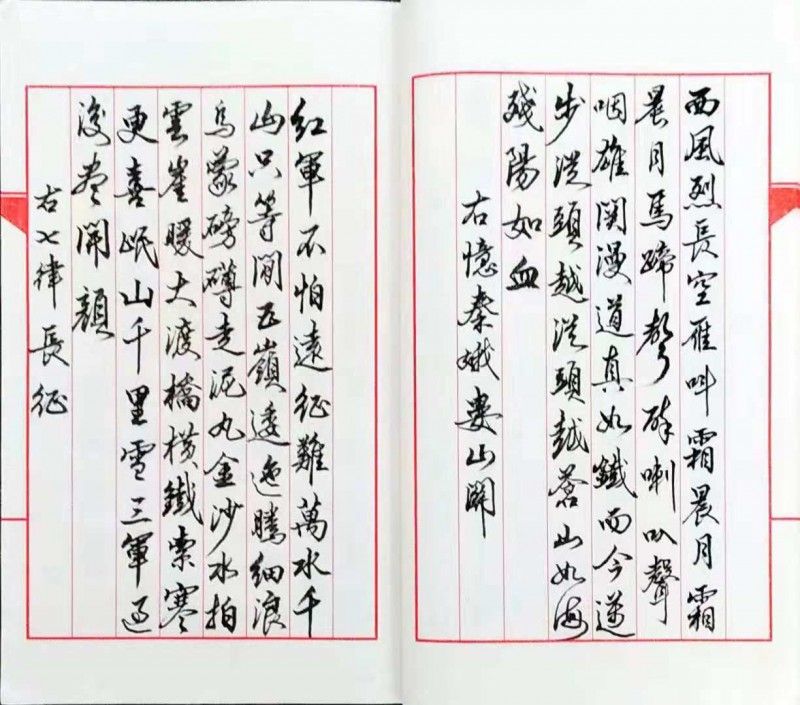 西風烈長空雁叫霜晨月霜
晨月馬蹄聲碎喇叭聲
咽雄関漫道真如鐵而今邁
步從頭越從頭越蒼山如海
殘陽如血
右憶秦娥婁山関
紅軍不怕遠征難萬水千
山只等閒五嶺逶迤騰細浪
烏蒙磅礴走泥丸金沙水拍
雲崖暖大渡橋橫鐵索寒
更喜岷山千里雪三軍過
後盡開顏
右七律長征